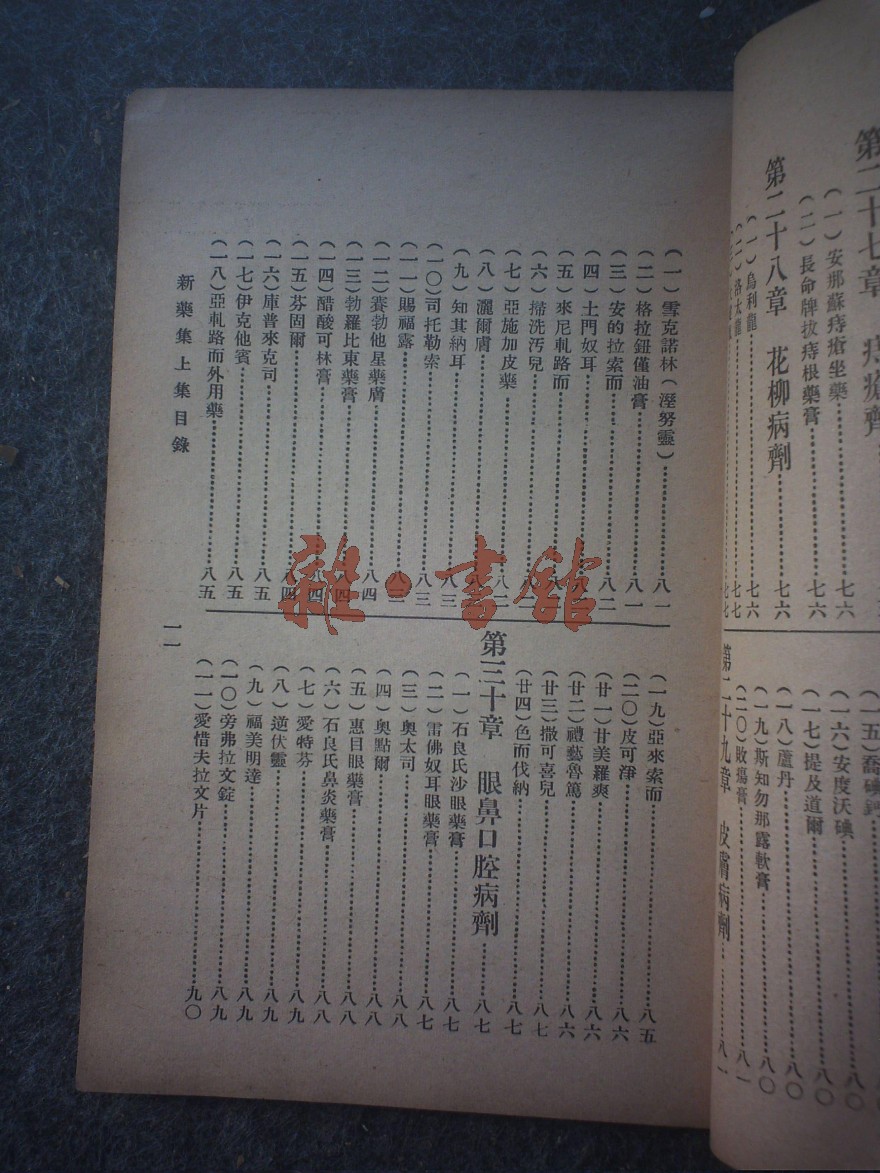 第二十七章 痔瘡劑
(一)安那蘇痔瘡坐藥……七六
(二)長命牌拔痔根藥膏……七六
第二十八章 花柳病劑……七六
(一)烏利龍……七六
(一六)安度沃碘……八〇
(一七)提及道爾……八〇
(一八)蘆丹……八〇
(一九)斯知勿那露軟膏……八〇
(二〇)敗瘍膏……八一
第二十九章 皮膚病劑……八一
(一)雪克諾林(溼努靈)……八一
(二)格拉鈕僅油膏……八一
(三)安的拉索而……八二
(四)土門奴耳……八二
(五)來尼虬路而……八二
(六)滯洗汚兒……八二
(七)亞施加皮藥……八二
(八)灑爾膚……八三
(九)知其納耳……八三
(一〇)司托勒索……八三
(一一)賜福露……八三
(一二)賽勃他星藥膚……八四
(一三)勃羅比東藥膏……八四
(一四)醋酸可林膏……八四
(一五)芬固爾……八四
(一六)庫普來克司……八五
(一七)伊克他賓……八五
(一八)亞虬路而外用藥……八五
(一九)亞來索而……八五
(二〇)皮可淨……八六
(廿一)甘美羅爽……八六
(廿二)禮藝魯篤……八六
(廿三)撒可喜兒……八七
(廿四)色而伐納……八七
第三十章 眼鼻口腔病劑……八七
(一)石良氏沙眼藥膏……八七
(二)雷佛奴耳眼藥膏……八七
(三)奧太司……八八
(四)奧點爾……八八
(五)惠目眼藥膏……八八
(六)石良氏鼻炎藥膏……八八
(七)愛特芬……八九
(八)逆伏靈……八九
(九)福美明達……八九
(一〇)旁弗拉文錠……八九
(一一)愛惜夫拉文片……九〇
新藥集上集目錄
一一
雜·書館